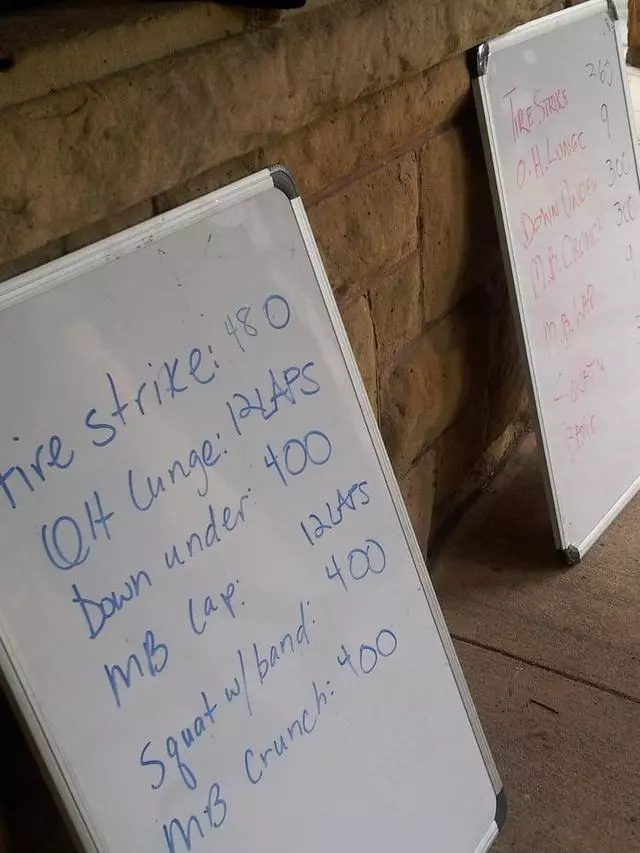 tire strike: 480
OH Lunge: 12LAPS
Down under: 400
MB Lap: 12LAPS
Squat w/band: 400
MB Crunch: 400
TIRE STRIKE 260
O.H. LUNGE 9
DOWN UNDER 300
M.B. CRUNCH 300
M.B. LAP 9